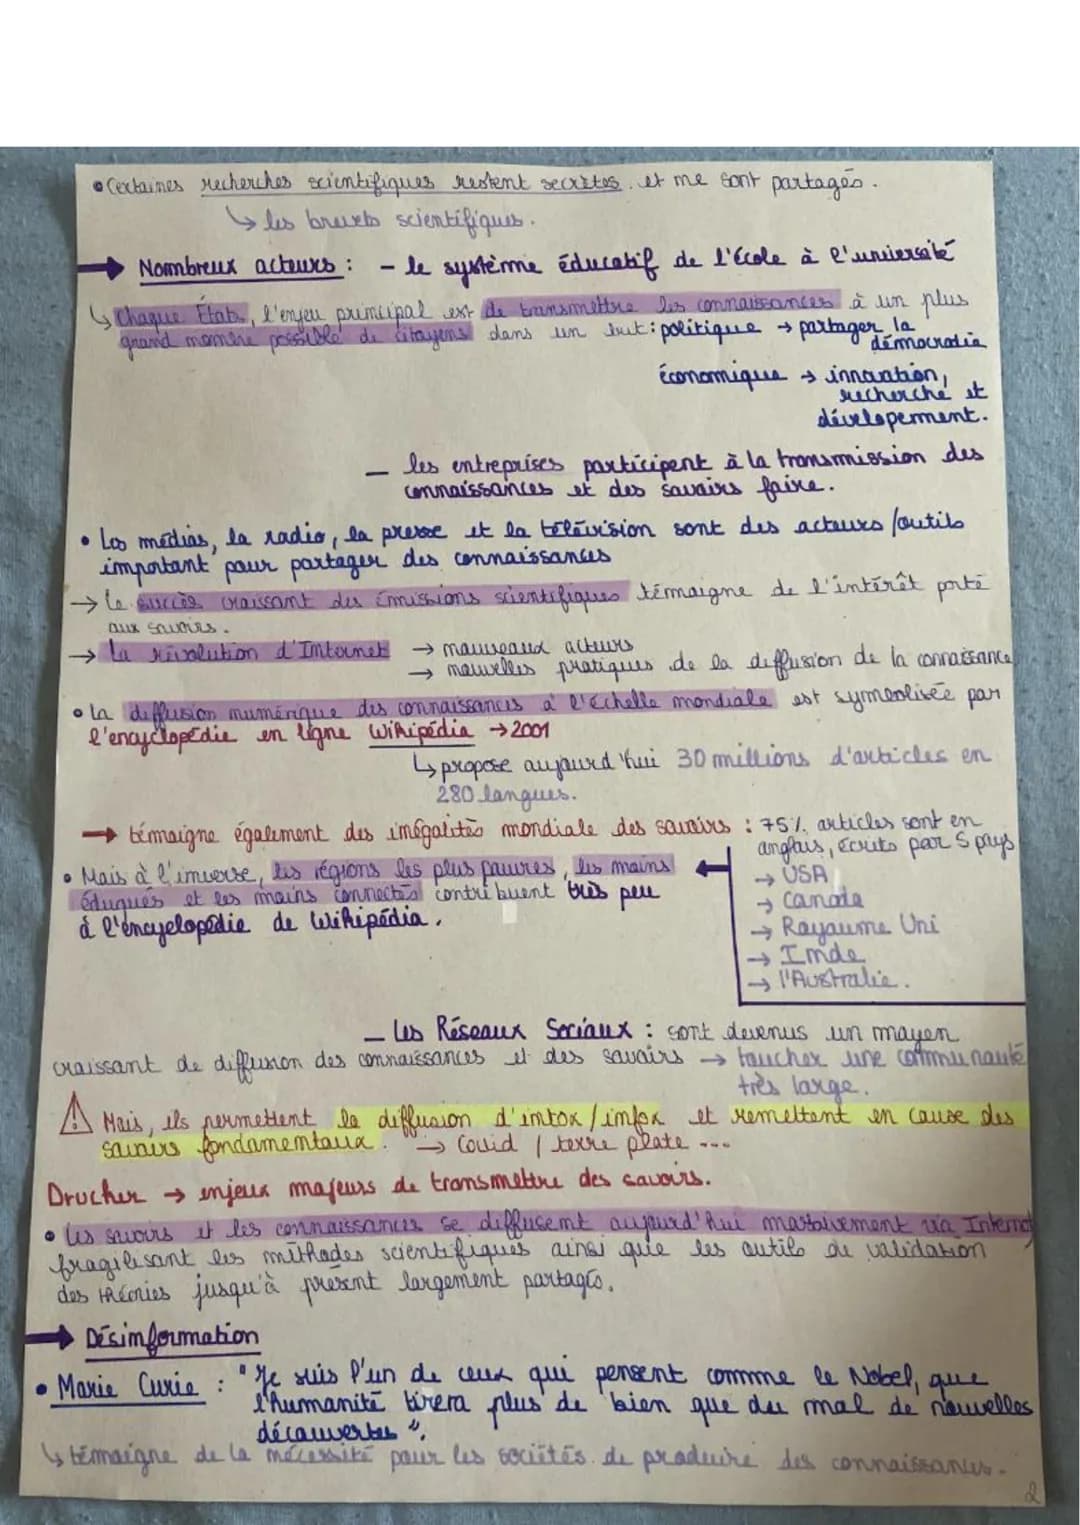 • Certaines recherches scientifiques restent secrètes. et ne sont partagés.
↳ les brevets scientifiques.
→ Nombreux acteurs : - le système éducatif de l'école à l'université
↳ Chaque États, l'enjeu principal est de transmettre les connaissances à un plus
grand nombre possible de citoyens dans un but : politique → partager la
démocratie
économique → innovation,
recherche et
développement.
- les entreprises participent à la transmission des
connaissances et des savoirs faire.
• Les médias, la radio, la presse et la télévision sont des acteurs/outils
important pour partager des connaissances
→ le succès croissant des émissions scientifiques témoigne de l'intérêt porté
aux savoirs.
→ la révolution d'Internet → nouveaux acteurs
→ nouvelles pratiques de la diffusion de la connaissance
• La diffusion numérique des connaissances à l'échelle mondiale est symbolisée par
l'encyclopédie en ligne Wikipédia → 2001
↳ propose aujourd'hui 30 millions d'articles en
280 langues.
→ témoigne également des inégalités mondiale des savoirs : 75% articles sont en
anglais, écrits par 5 pays
• Mais à l'inverse, les régions les plus pauvres, les moins
éduqués et les moins connectés contribuent très peu
à l'encyclopédie de Wikipédia.
→ USA
→ Canada
→ Royaume Uni
→ Inde
→ l'Australie.
- Les Réseaux Sociaux : sont devenus un moyen
croissant de diffusion des connaissances et des savoirs → toucher une communauté
très large.
⚠ Mais, ils permettent la diffusion d'intox/infox et remettent en cause des
savoirs fondamentaux. → Covid / terre plate ...
Drucher → enjeux majeurs de transmettre des savoirs.
• Les savoirs et les connaissances se diffusent aujourd'hui massivement via Internet
fragilisant les méthodes scientifiques ainsi que les outils de validation
des théories jusqu'à présent largement partagés.
→ Désinformation
• Marie Curie : "Je suis l'un de ceux qui pensent comme le Nobel, que
l'humanité tirera plus de bien que du mal de nouvelles
découvertes".
↳ témoigne de la nécessité pour les sociétés de produire des connaissances.
2